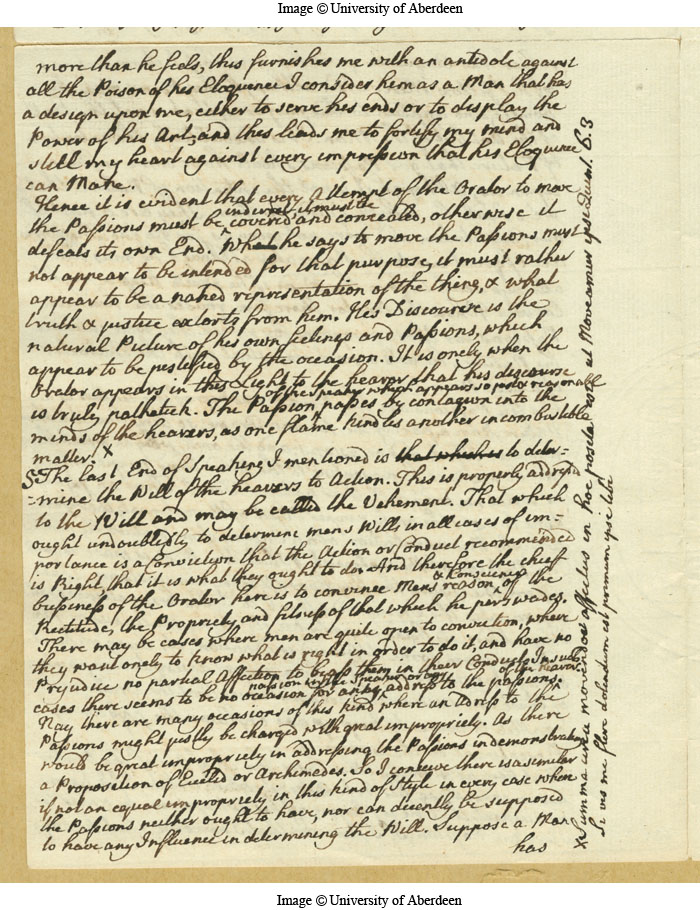 Image © University of Aberdeen
more than he feels, this furnishes me with an antidote against
all the Poison of his Eloquence I consider him as a Man that has
a design upon me, either to serve his ends or to display the
Power of his Art, and this leads me to fortify my mind and
steel my heart against every impression that his Eloquence
can Make.
Hence it is evident that every Attempt of the Orator to move
indirect, it must be
the Passions must be covered and concealed, otherwise it
defeats its own End. What he says to move the Passions must
not appear to be intended for that purpose, it must rather
appear to be a naked representation of the thing, & what
truth & justice extorts from him. His Discourse is the
natural Picture of his own feelings and Passions, which
appear to be justified by the occasion. It is onely when the
Orator appears in this Light to the hearer that his discourse
of the speaker which appears so just & reasonable
is truly pathetick. The Passion passes by contagion into the
minds of the hearers, as one flame kindles another in combustible
matter. X
5 The last End of Speaking I mentioned is that which is to deter-
-mine the Will of the hearers to Action. This is properly addressd
to the Will and may be called the Vehement. That which
ought undoubtedly to determine mens Wills in all cases of im-
portance is a Conviction that the Action or Conduct recommended
is Right, that it is what they ought to do. And therefore the chief
& Conscience
business of the Orator here is to convince Mens reason of the
Rectitude, the Propriety and fitness of that which he perswades.
There may be cases where men are quite open to conviction, where
they want onely to know what is right in order to do it, and have no
Prejudice no partial Affection to byass them in their Conduct. In such
cases there seems to be no occasion for any address to the passions.
passion in the Speaker or of the hearer
Nay there are many occasions of this kind where an adress to the
Passions might justly be charged with great impropriety. As there
would be great impropriety in addressing the Passions in demonstrating
a Proposition of Euclid or Archimedes. So I conceive there is a similar
if not an equal impropriety in this kind of Style in every case where
the Passions neither ought to have, nor can decently be supposed
to have any Influence in determining the Will. Suppose a Man
has
X Summa circa movendos affectus in hoc posita est ut Moveamur ipsi Quint. 6.3
Si vis me flere dolendum est primum ipsi tibi
Image © University of Aberdeen